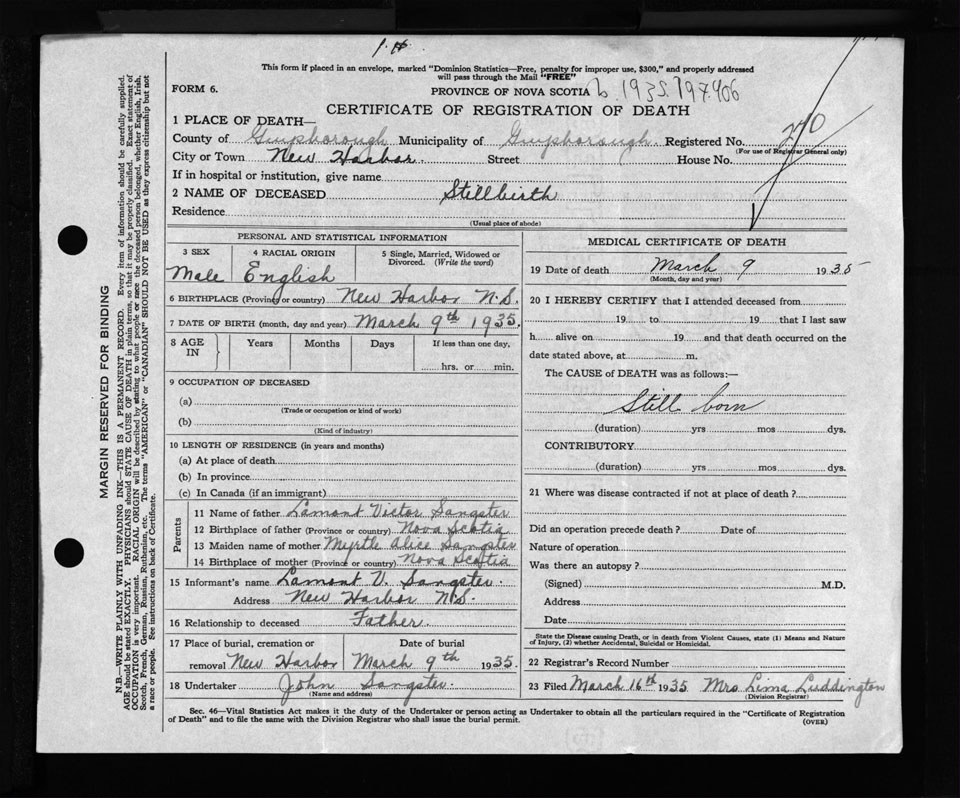 This form if placed in an envelope, marked "Dominion Statistics—Free, penalty for improper use, $300," and properly addressed
will pass through the Mail "FREE"
FORM 6.
PROVINCE OF NOVA SCOTIA
CERTIFICATE OF REGISTRATION OF DEATH
1 PLACE OF DEATH—
County of Guysborough Municipality of Guysborough Registered No.
(For use of Registrar General only)
City or Town New Harbor. Street House No.
If in hospital or institution, give name
2 NAME OF DECEASED Stillbirth
Residence
(Usual place of abode)
PERSONAL AND STATISTICAL INFORMATION
3 SEX Male
4 RACIAL ORIGIN English
5 Single, Married, Widowed or Divorced. (Write the word)
6 BIRTHPLACE (Province or country) New Harbor N.S.
7 DATE OF BIRTH (month, day and year) March 9th 1935.
8 AGE IN Years Months Days If less than one day,
hrs. or min.
9 OCCUPATION OF DECEASED
(a)
(Trade or occupation or kind of work)
(b)
(Kind of industry)
10 LENGTH OF RESIDENCE (in years and months)
(a) At place of death
(b) In province
(c) In Canada (if an immigrant)
Parents
11 Name of father Lamont Victor Sangster
12 Birthplace of father (Province or country) Nova Scotia
13 Maiden name of mother Myrtle Alice Sangster
14 Birthplace of mother (Province or country) Nova Scotia
15 Informant's name Lamont V. Sangster.
Address New Harbor N.S.
16 Relationship to deceased Father.
17 Place of burial, cremation or Date of burial
removal New Harbor March 9th 1935.
18 Undertaker John Sangster.
(Name and address)
MEDICAL CERTIFICATE OF DEATH
19 Date of death March 9 1935
(Month, day and year)
20 I HEREBY CERTIFY that I attended deceased from
19 to 19 that I last saw
h alive on 19 and that death occurred on the
date stated above, at m.
The CAUSE of DEATH was as follows:—
Still born
(duration) yrs mos dys.
CONTRIBUTORY
(duration) yrs mos dys.
21 Where was disease contracted if not at place of death ?
Did an operation precede death ? Date of
Nature of operation
Was there an autopsy ?
(Signed) M.D.
Address
Date
State the Disease causing Death, or in death from Violent Causes, state (1) Means and Nature
of Injury, (2) whether Accidental, Suicidal or Homicidal.
22 Registrar's Record Number
23 Filed March 16th 1935 Mrs Luddington
(Division Registrar)
Sec. 46—Vital Statistics Act makes it the duty of the Undertaker or person acting as Undertaker to obtain all the particulars required in the "Certificate of Registration
of Death" and to file the same with the Division Registrar who shall issue the burial permit.
(OVER)
MARGIN RESERVED FOR BINDING
N.B.—WRITE PLAINLY WITH UNFADING INK—THIS IS A PERMANENT RECORD. Every item of information should be carefully supplied.
AGE should be stated EXACTLY. PHYSICIANS should STATE CAUSE OF DEATH in plain terms, so that it may be properly classified. Exact statement of
OCCUPATION is very important. RACIAL ORIGIN will be described by stating to what people or race the deceased person belonged, whether English, Irish,
Scotch, French, German, Russian, Ruthenian, etc. The terms "AMERICAN" or "CANADIAN" SHOULD NOT BE USED as they express citizenship but not
a race or people. See instructions on back of Certificate.